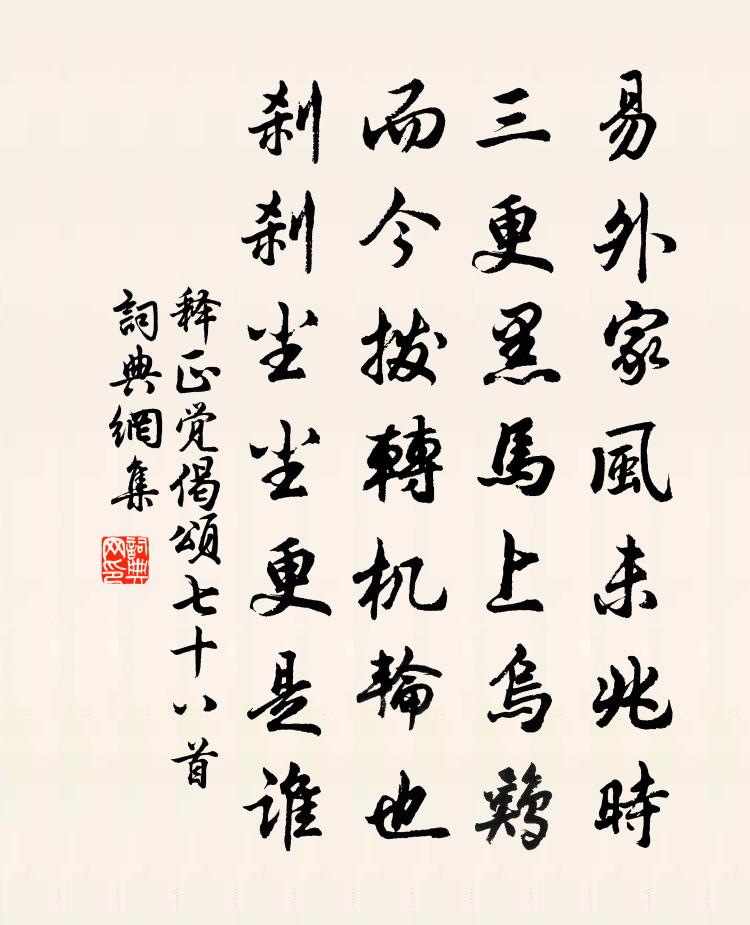 易外家風未兆時
三更黑馬上烏鷄
而今撥轉机輪也
刹刹尘尘更是誰
释正觉偈頌七十八首
詞典網集
詞典网印